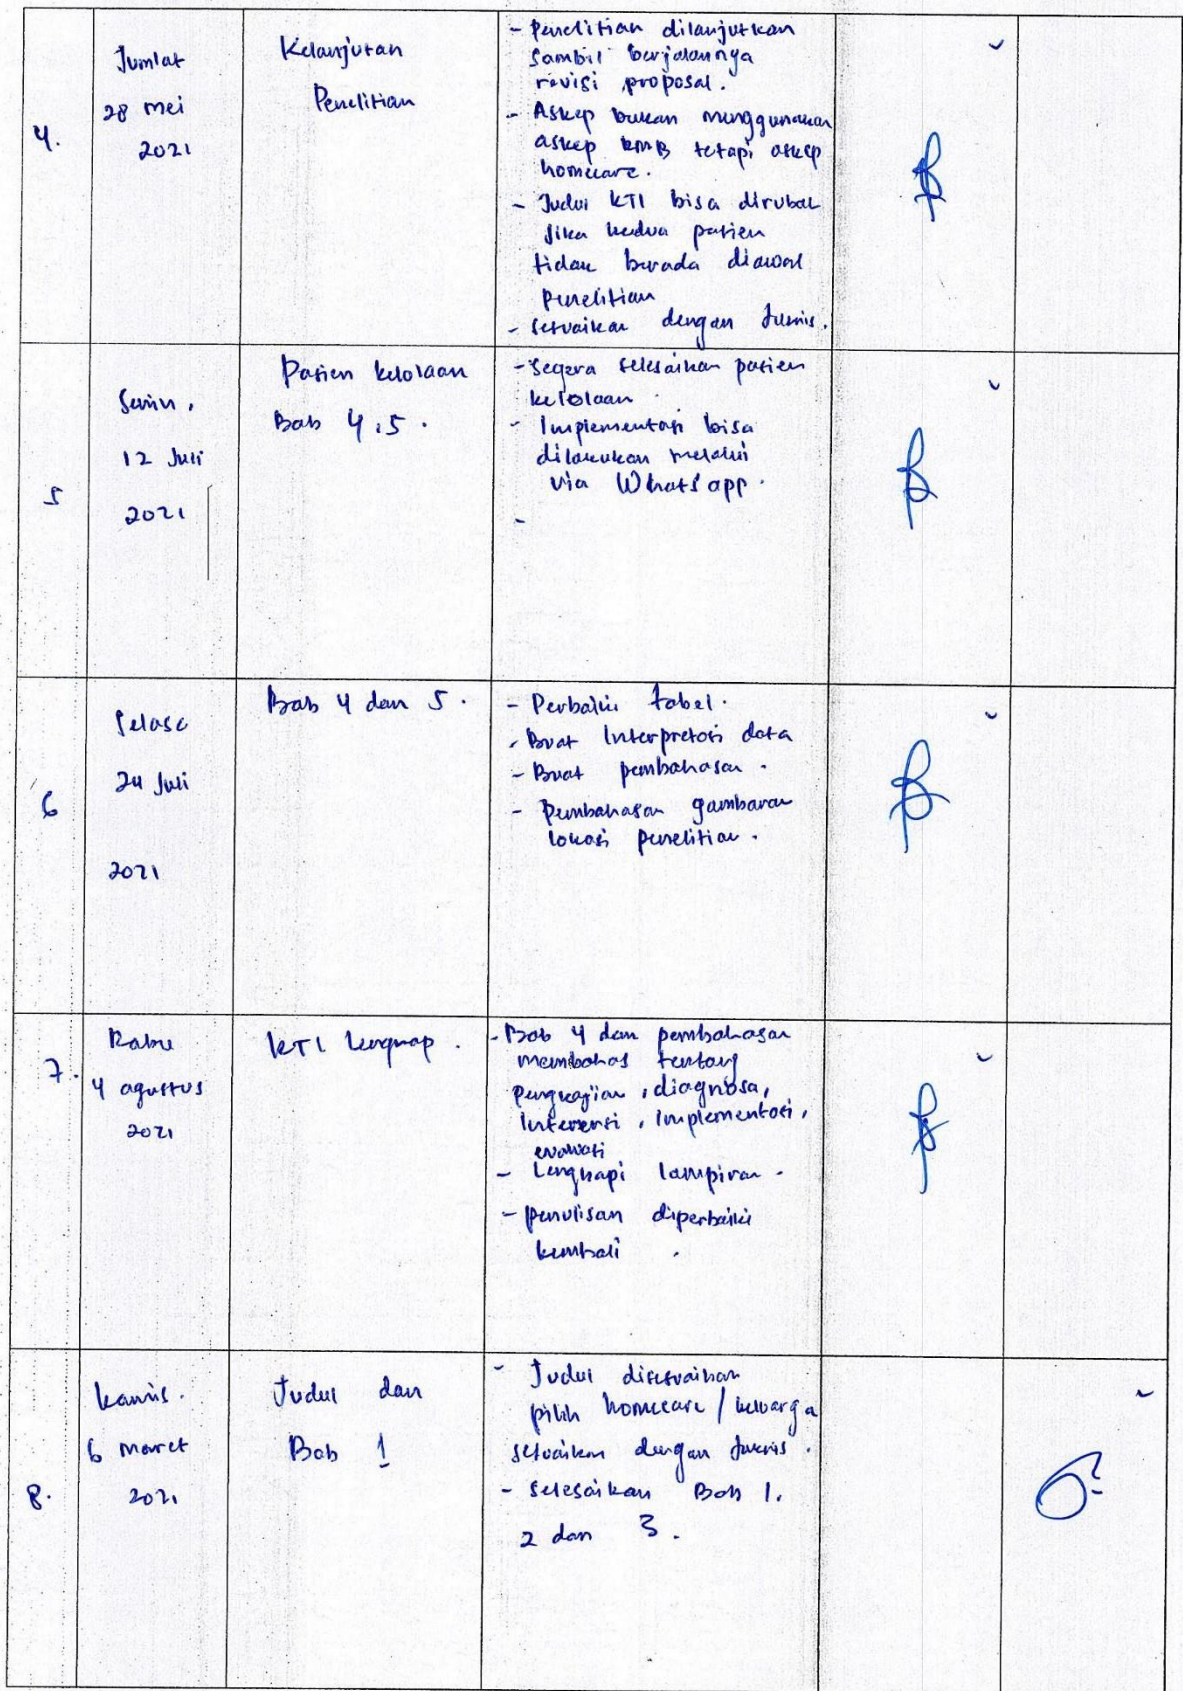 4.
Jumlat
28 mei
2021
Kelanjutan
Penelitian
- Penelitian dilanjutkan
sambil berjalannya
revisi proposal.
- Askep bukan menggunakan
askep KMB tetapi askep
homecare.
- Judul KTI bisa dirubah
jika kedua pasien
tidak berada diawal
penelitian
- sesuaikan dengan Juknis.
5
Senin,
12 Juli
2021
Pasien kelolaan
Bab 4.5.
- Segera selesaikan pasien
kelolaan.
- Implementasi bisa
dilakukan melalui
via Whats app.
-
6
Selasa
24 Juli
2021
Bab 4 dan 5.
- Perbaiki tabel.
- Buat Interpretasi data
- Buat pembahasan.
- Pembahasan gambaran
lokasi penelitian.
7.
Rabu
4 agustus
2021
KTI lengkap.
- Bab 4 dan pembahasan
membahas tentang
pengkajian, diagnosa,
Intervensi, Implementasi,
evaluasi
- Lengkapi lampiran.
- penulisan diperbaiki
kembali.
8.
kamis.
6 maret
2021
Judul dan
Bab 1
- Judul disesuaikan
pilih homecare / keluarga
sesuaikan dengan juknis.
- selesaikan Bab 1.
2 dan 3.